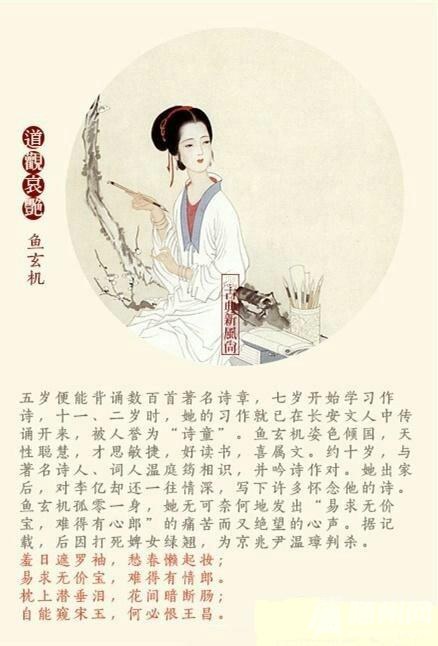 道觀哀艷
鱼玄机
古典新風尚
五岁便能背诵数百首著名诗章，七岁开始学习作
诗，十一、二岁时，她的习作就已在长安文人中传
诵开来，被人誉为“诗童”。鱼玄机姿色倾国，天
性聪慧，才思敏捷，好读书，喜属文。约十岁，与
著名诗人、词人温庭筠相识，并吟诗作对。她出家
后，对李亿却还一往情深，写下许多怀念他的诗。
鱼玄机孤零一身，她无可奈何地发出“易求无价
宝，难得有心郎”的痛苦而又绝望的心声。据记
载，后因打死婢女绿翘，为京兆尹温璋判杀。
羞日遮罗袖，愁春懒起妆；
易求无价宝，难得有情郎。
枕上潜垂泪，花间暗断肠；
自能窥宋玉，何必恨王昌。